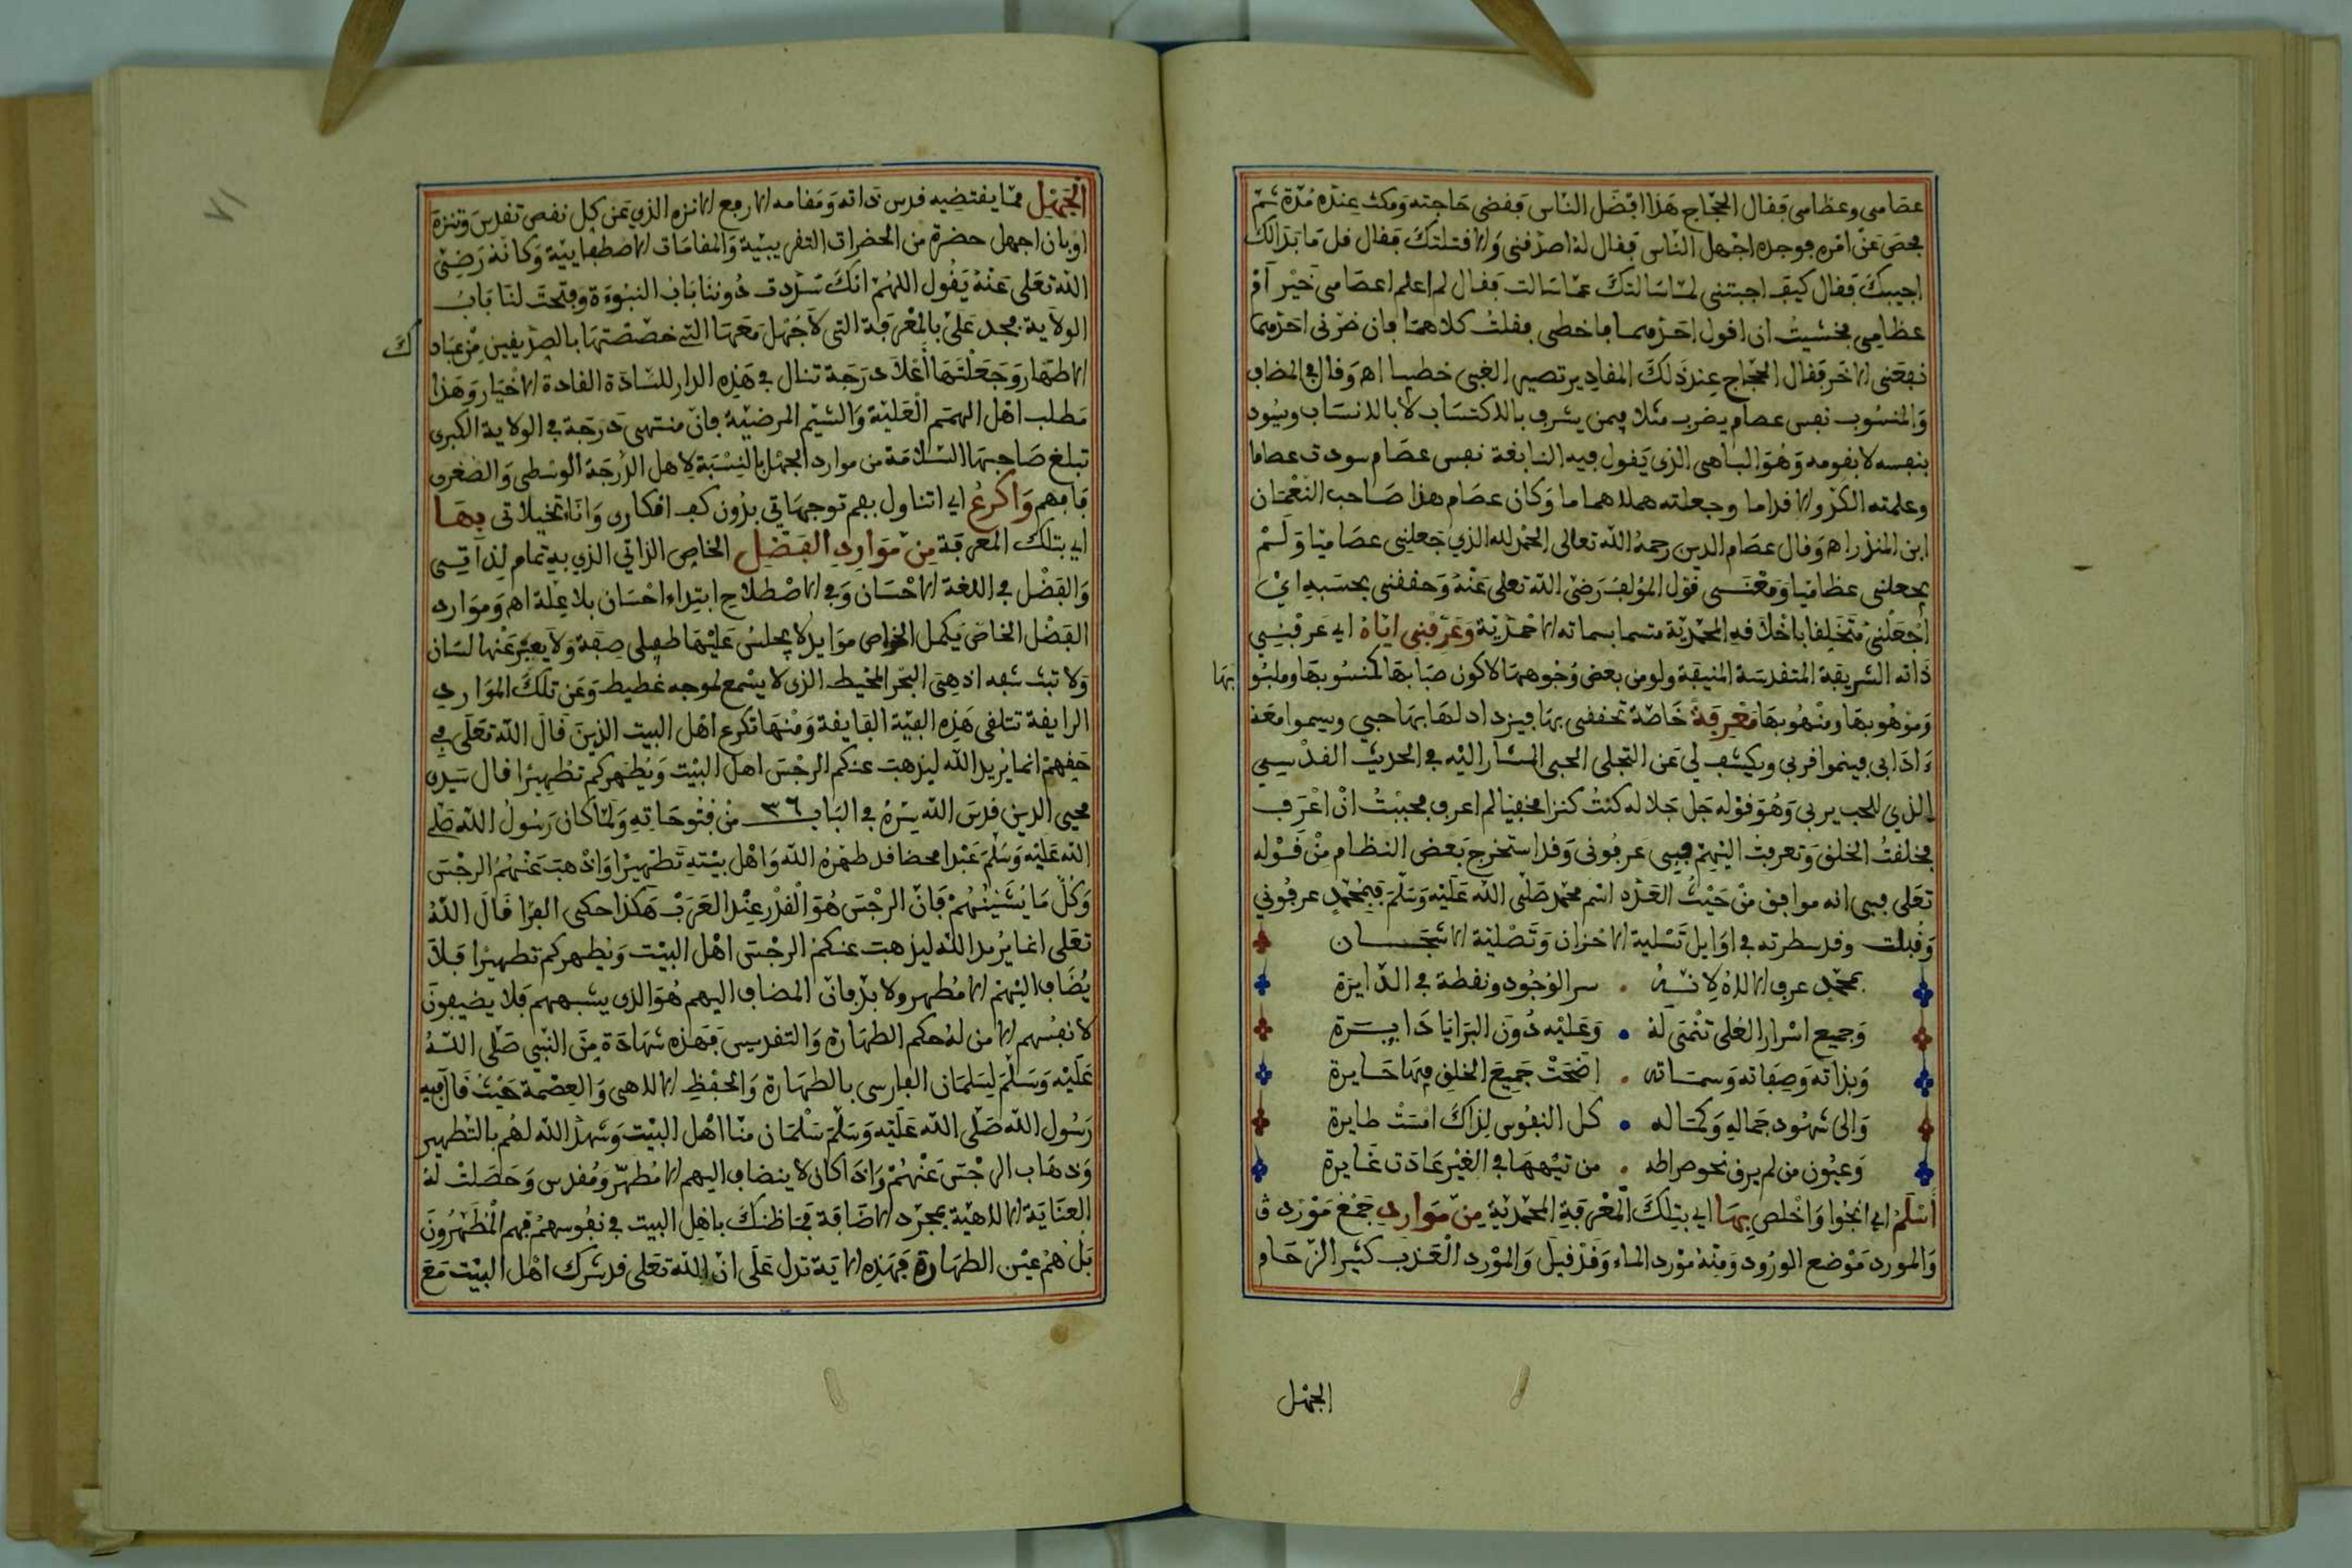 عصامى وعظامى فقال الحجاج هذا افضل الناس فقضى حاجته ومكث عنده مدة ثم
فحص عن امره فوجده اجهل الناس فقال له اصدقنى والا قتلتك فقال قل ما بدالك
اجيبك فقال كيف اجبتنى لما سالتك عما سالت فقال لم اعلم اعصامى خير ام
عظامى فخشيت ان اقول احدهما فاخطى فقلت كلاهما فان ضرنى احدهما
نفعنى الاخر فقال الحجاج عند ذلك المقادير تصير الغبى خطيبا اهـ وقال فى المضاف
والمنسوب نفس عصام يضرب مثلا فيمن يشرف بالاكتساب لا بالانتساب ويسود
بنفسه لا بقومه وهو الباهى الذى يقول فيه النابغة نفس عصام سودت عصاما
وعلمته الكر والاقداما وجعلته هملاهماما وكان عصام هذا صاحب النعمان
ابن المنذر اهـ وقال عصام الدين رحمه الله تعالى الحمد لله الذي جعلنى عصاميا ولم
يجعلنى عظاميا ومعنى قول المؤلف رضى الله تعلى عنه وحققنى بحسبه اي
اجعلنى متخلقا باخلاقه المحمدية متسما بسماته الاحمدية وعرفنى اياه اي عرفنى
ذاته الشريفة المتقدسة المنيفة ولو من بعض وجوهها لاكون صبا بها كمنسوبها وملبو بها
وموهوبها ومنهوبها معرفة خاصة تحققى بها فيزداد لها بها حبي ويسموا معه
ءادابى فينموا قربى ويكشف لي عن التجلى الحبى المشار اليه فى الحديث القدسي
الذي للحب يربى وهو قوله جل جلاله كنت كنزا مخفيا لم اعرف فحببت ان اعرف
فخلقت الخلق وتعرفت اليهم فبى عرفونى وقد استخرج بعض النظام من قوله
تعلى فبى انه موافق من حيث العده اسم محمد صلى الله عليه وسلم فبمحمد عرفوني
وقلت وقد سطرته فى اوايل تسلية الاحزان وتصلية الاشجان
بمحمد عرف الاله لانه سر الوجود ونقطة فى الدايرة
وجميع اسرار العلى تنمى له وعليه دون البرايا دايرة
وبذاته وصفاته وسماته اضحت جميع الخلق فيها حايرة
والى شهود جماله وكماله كل النفوس لذاك امست طايرة
وعيون من لم يرق نحو صراطه من تيهها فى الغير عادت غايرة
اسلم اي انجوا واخلص بها اي بتلك المعرفة المحمدية من موارد جمع مورد
والمورد موضع الورود ومنه مورد الماء وقد قيل والمورد العذب كثير الزحام
الجهل
الجهل مما يقتضيه قدس ذاته ومقامه الارفع الانزه الذي عن كل نقص تقدس وتنزه
او بان اجهل حضرة من الحضرات التقريبية والمقامات الاصطفاييية وكانه رضى
الله تعلى عنه يقول اللهم انك سددت دوننا باب النبوءة وفتحت لنا باب
الولاية فجد على بالمعرفة التى لا جهل معها التى خصصتها بالصديقين من عبادك
الاطهار وجعلتها أعلا درجة تنال في هذه الدار للسادة القادة الاخيار وهذا
مطلب اهل الهمم العلية والشيم المرضية فان منتهى درجة فى الولاية الكبرى
تبلغ صاحبها السلامة من موارد الجهل بالنسبة لاهل الدرجة الوسطى والصغرى
فافهم واكرع اي اتناول بفم توجهاتي بدون كف افكارى وانا تخيلاتى بها
اي بتلك المعرفة من موارد الفضل الخاص الذاتي الذي به تمام لذاتى
والفضل فى اللغة الاحسان وفى الاصطلاح ابتداء احسان بلا علة اهـ وموارد
الفضل الخاص يكمل الخواص موايد لا يجلس عليها طفيلى صفة ولا يعبر عنها لسان
ولا تبث شفه اذ هى البحر المحيط الذى لا يسمع لموجه غطيط وعن تلك الموارد
الرايقة تتلقى هذه الفية الفايقة ومنها تكرع اهل البيت الذين قال الله تعلى فى
حقهم انما يريد الله ليذهب عنكم الرجس اهل البيت ويطهركم تطهيرا قال سيدى
محيى الدين قدس الله سره فى الباب ٣٦ من فتوحاته ولما كان رسول الله صلى
الله عليه وسلم عبدا محضا قد طهره الله واهل بيته تطهيرا واذهب عنهم الرجس
وكل ما يشينهم فان الرجس هو القذر عند العرب هكذا حكى الفرا قال الله
تعلى انما يريد الله ليذهب عنكم الرجس اهل البيت ويطهركم تطهيرا فلا
يضاف اليهم الا مطهر ولا بد فان المضاف اليهم هو الذى يشبههم فلا يضيفون
لانفسهم الا من له حكم الطهارة والتقديس فهذه شهادة من النبي صلى الله
عليه وسلم لسلمان الفارسى بالطهارة والحفظ الالاهى والعصمة حيث قال فيه
رسول الله صلى الله عليه وسلم سلمان منا اهل البيت وشهد الله لهم بالتطهير
وذهاب الرجس عنهم واذا كان لا ينضاف اليهم الا مطهر ومقدس وحصلت له
العناية الالاهية بمجرد الاضافة فما ظنك باهل البيت فى نفوسهم فهم المطهرون
بل هم عين الطهارة فهذه الاية تدل على ان الله تعلى قد شرك اهل البيت مع